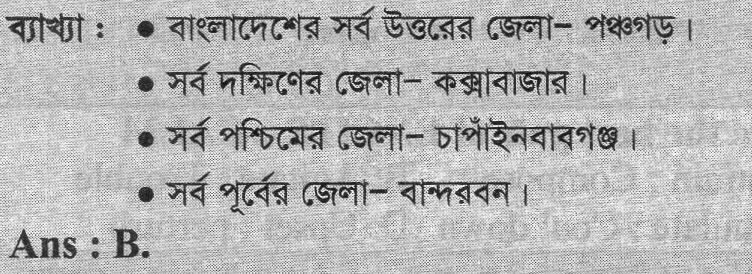 ব্যাখ্যা : ● বাংলাদেশের সর্ব উত্তরের জেলা– পঞ্চগড়।
● সর্ব দক্ষিণের জেলা– কক্সাবাজার।
● সর্ব পশ্চিমের জেলা– চাপাঁইনবাবগঞ্জ।
● সর্ব পূর্বের জেলা– বান্দরবন।
Ans : B.